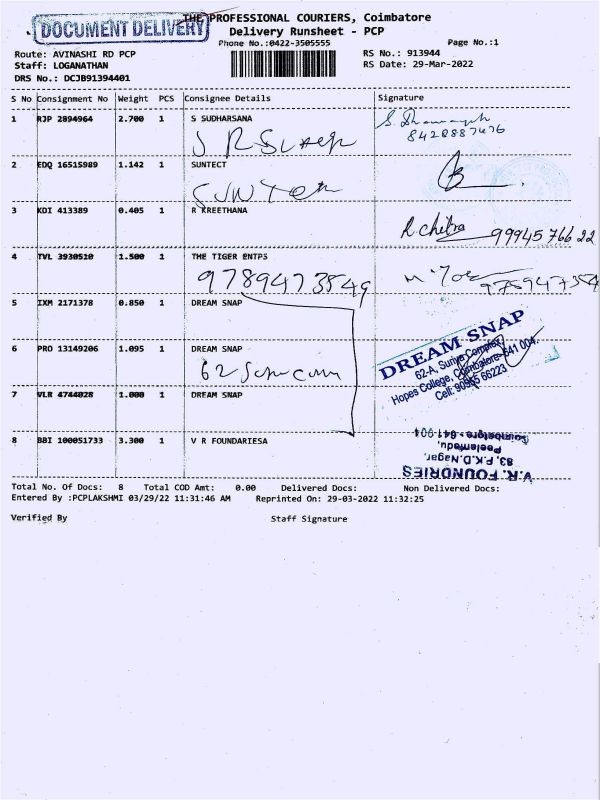 DOCUMENT DELIVERY
THE PROFESSIONAL COURIERS, Coimbatore
Delivery Runsheet - PCP
Phone No.:0422-3505555
Page No.:1
Route: AVINASHI RD PCP
RS No.: 913944
Staff: LOGANATHAN
RS Date: 29-Mar-2022
DRS No.: DCJB91394401
S No Consignment No Weight PCS Consignee Details Signature
1 RJP 2894964 2.700 1 S SUDHARSANA
8428887476
2 EDQ 16515989 1.142 1 SUNTECT
3 KDI 413389 0.405 1 R KREETHANA
R Chitra 9994576622
4 TVL 3930510 1.500 1 THE TIGER ENTPS
9789473549
5 IXM 2171378 0.850 1 DREAM SNAP
6 PRO 13149206 1.095 1 DREAM SNAP
62
DREAM SNAP
62-A, Suriya Complex,
Hopes College, Coimbatore-641 004.
Cell: 90955 66223
7 VLR 4744028 1.000 1 DREAM SNAP
8 BBI 100051733 3.300 1 V R FOUNDARIESA
V.R. FOUNDRIES
83, F.K.D.Nagar,
Peelamedu,
Coimbatore - 641 004
Total No. Of Docs: 8 Total COD Amt: 0.00 Delivered Docs: Non Delivered Docs:
Entered By :PCPLAKSHMI 03/29/22 11:31:46 AM Reprinted On: 29-03-2022 11:32:25
Verified By Staff Signature